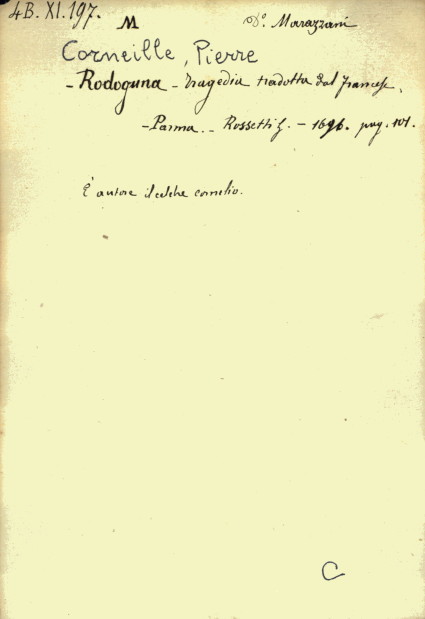 4B. XI. 197.
M
Dº. Marazzani
Corneille, Pierre
- Rodoguna - Tragedia tradotta dal francese.
- Parma. - Rossetti G. - 1696. pag. 101.
È autore il celebre cornelio.
C